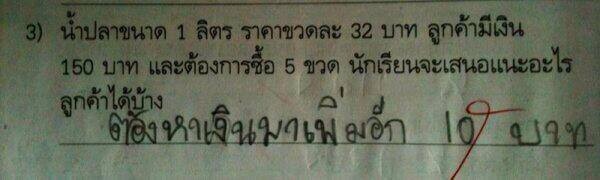 3) น้ำปลาขนาด 1 ลิตร ราคาขวดละ 32 บาท ลูกค้ามีเงิน
150 บาท และต้องการซื้อ 5 ขวด นักเรียนจะเสนอแนะอะไร
ลูกค้าได้บ้าง
ต้องหาเงินมาเพิ่มอีก 10 บาท